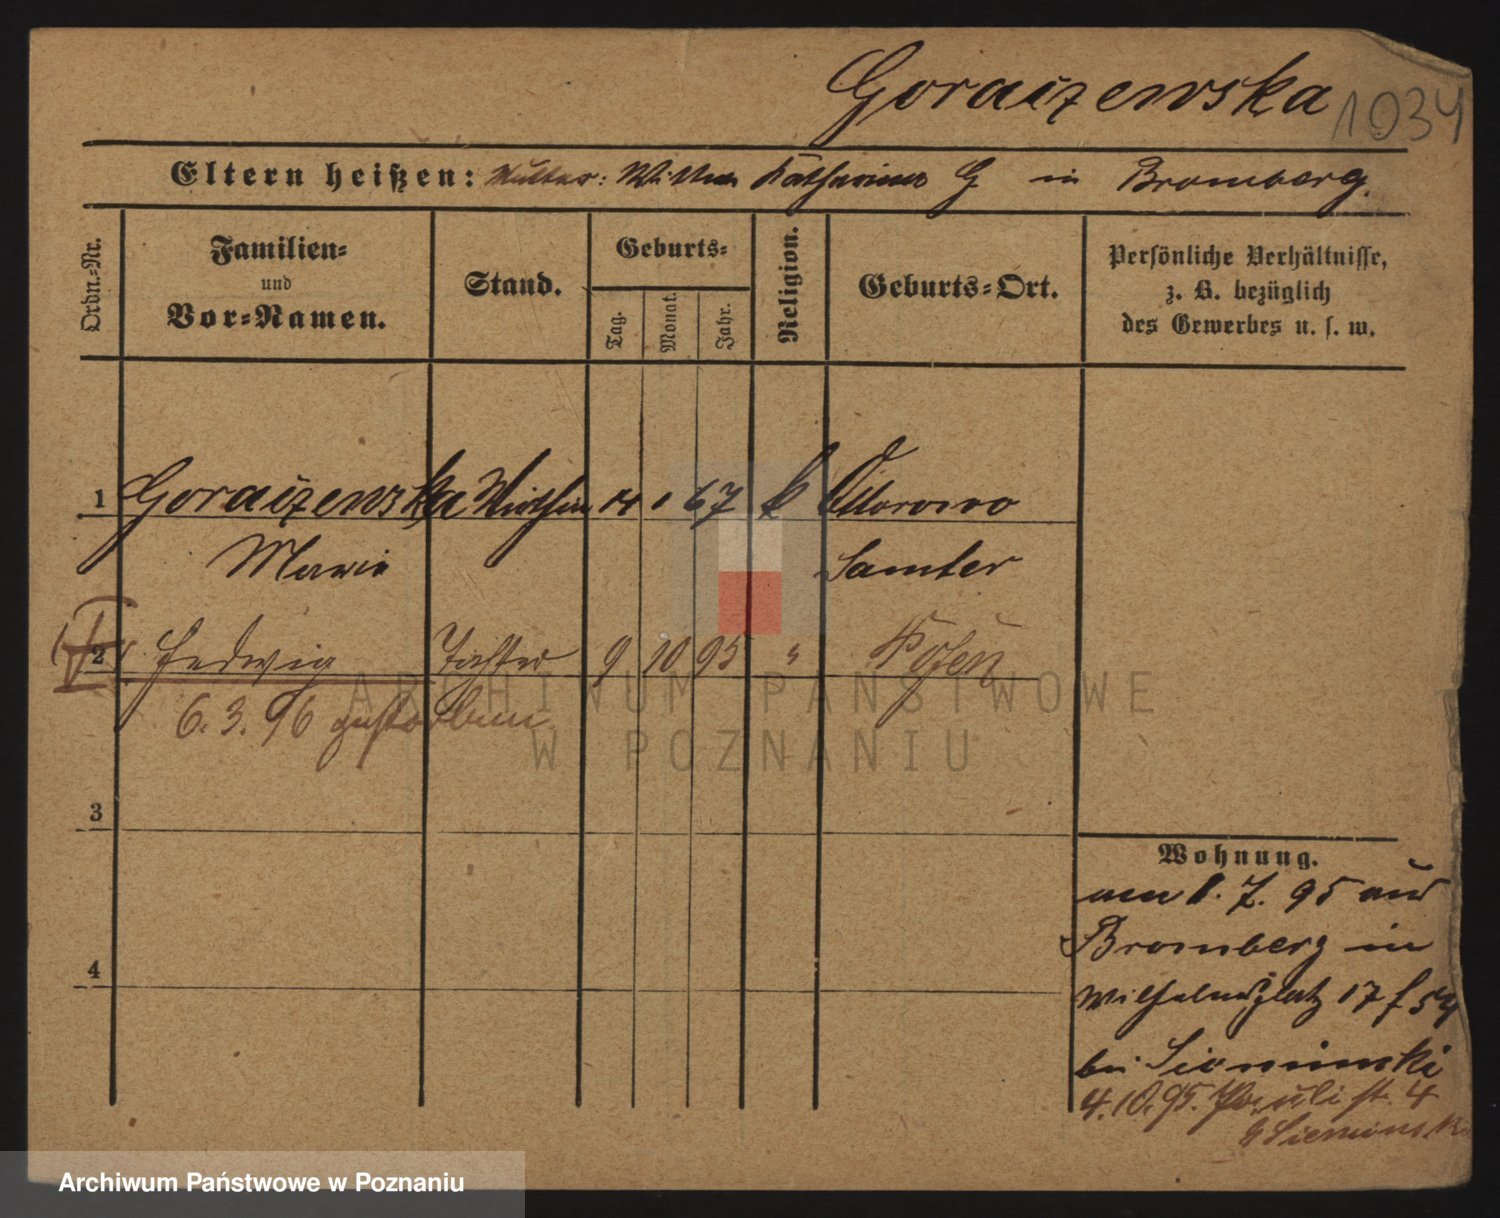 Goraizewska 1034
Eltern heißen: Mutter: Wittwe Katharina G in Bromberg.
Ordn.-Nr.
Familien-
und
Vor-Namen.
Stand.
Geburts-
Tag.
Monat.
Jahr.
Religion.
Geburts-Ort.
Persönliche Verhältnisse,
z. B. bezüglich
des Gewerbes u. s. w.
1 Goraizewska Wirthin 14 1 67 k Ottorowo
Marie Samter
2 Hedwig Tochter 9 10 95 " Posen
6. 3. 96 gestorben
3
4
Wohnung.
am 1. 7. 95 aus
Bromberg in
Wilhelmsplatz 17 f 54
bei Siominski
4. 10. 95. Pauli st. 4
Sieminski
ARCHIWUM PAŃSTWOWE
W POZNANIU
Archiwum Państwowe w Poznaniu